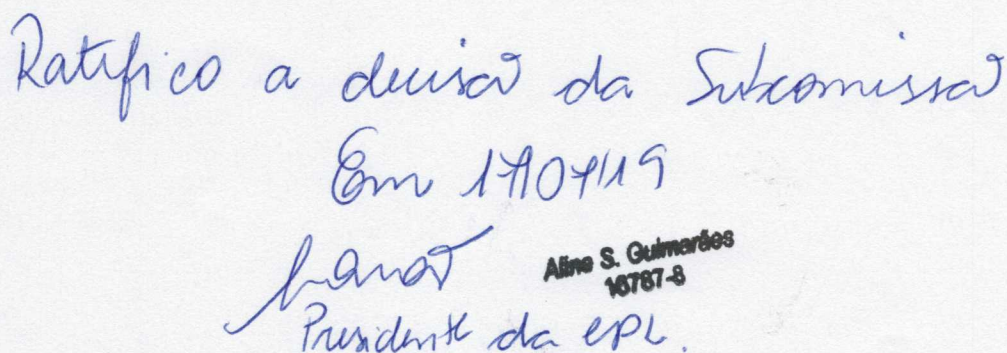 Ratifico a decisão da Subcomissão
Em 17/07/19
Aline S. Guimarães
16787-8
Presidente da CPL.